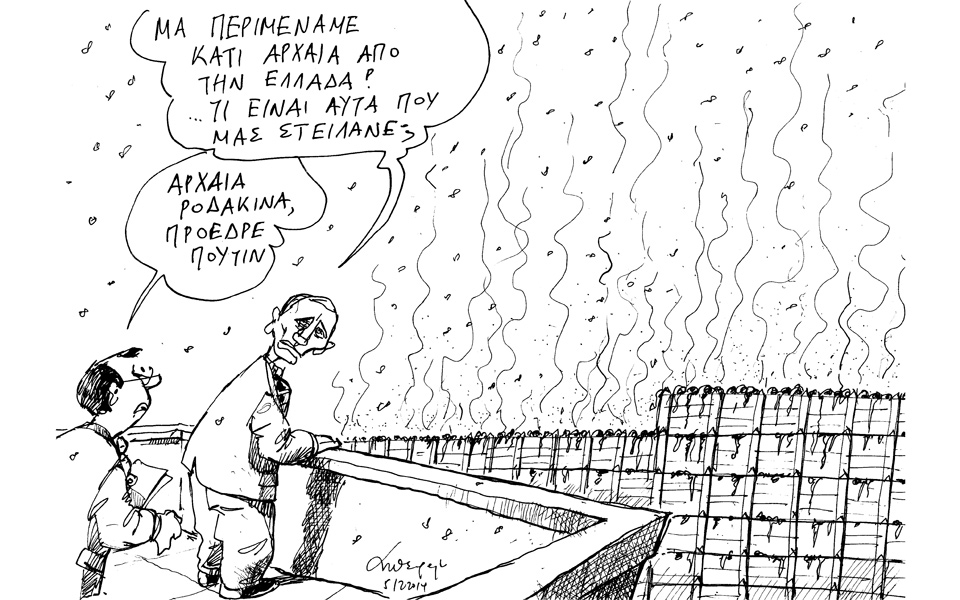 ΜΑ ΠΕΡΙΜΕΝΑΜΕ
ΚΑΤΙ ΑΡΧΑΙΑ ΑΠΟ
ΤΗΝ ΕΛΛΑΔΑ!
...ΤΙ ΕΙΝΑΙ ΑΥΤΑ ΠΟΥ
ΜΑΣ ΣΤΕΙΛΑΝΕ;
ΑΡΧΑΙΑ
ΡΟΔΑΚΙΝΑ,
ΠΡΟΕΔΡΕ
ΠΟΥΤΙΝ